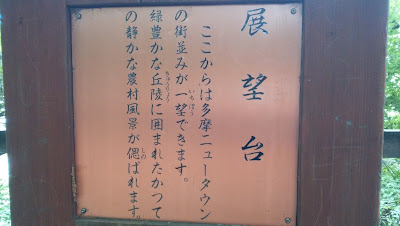 展望台
ここからは多摩ニュータウン
の街並みが一望できます。
緑豊かな丘陵に囲まれたかつて
の静かな農村風景が偲ばれます。